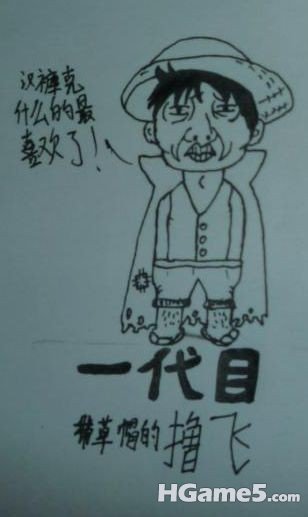 沢裤克
什么的最
喜欢了！
一代目
戴草帽的撸飞
HGame5.com